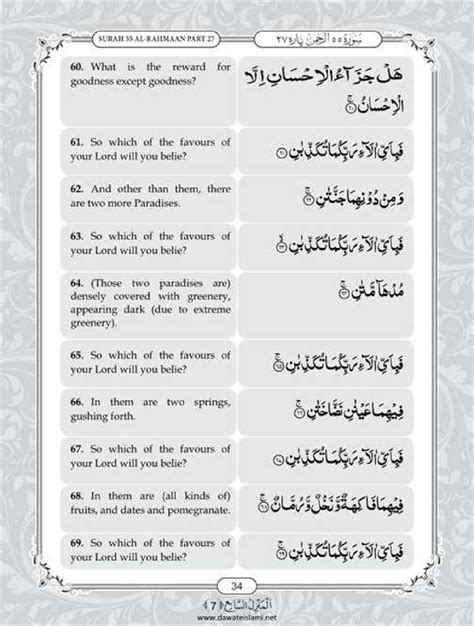 SURAH 55 AL-RAHMAAN PART 27
سُوْرَۃ ٥٥ اَلرَّحْمٰن پارہ ٢٧
60. What is the reward for
goodness except goodness?
هَلْ جَزَآءُ الْاِحْسَانِ اِلَّا
الْاِحْسَانُ ۚ ٦٠
61. So which of the favours of
your Lord will you belie?
فَبِاَيِّ اٰلَآءِ رَبِّكُمَا تُكَذِّبٰنِ ٦١
62. And other than them, there
are two more Paradises.
وَ مِنْ دُوْنِهِمَا جَنَّتٰنِ ۚ ٦٢
63. So which of the favours of
your Lord will you belie?
فَبِاَيِّ اٰلَآءِ رَبِّكُمَا تُكَذِّبٰنِ ٦٣
64. (Those two paradises are)
densely covered with greenery,
appearing dark (due to extreme
greenery).
مُدْهَآ مَّتٰنِ ۚ ٦٤
65. So which of the favours of
your Lord will you belie?
فَبِاَيِّ اٰلَآءِ رَبِّكُمَا تُكَذِّبٰنِ ۚ ٦٥
66. In them are two springs,
gushing forth.
فِيْهِمَا عَيْنٰنِ نَضَّاخَتٰنِ ۚ ٦٦
67. So which of the favours of
your Lord will you belie?
فَبِاَيِّ اٰلَآءِ رَبِّكُمَا تُكَذِّبٰنِ ٦٧
68. In them are (all kinds of)
fruits, and dates and pomegranate.
فِيْهِمَا فَاكِهَةٌ وَّ نَخْلٌ وَّ رُمَّانٌ ۚ ٦٨
69. So which of the favours of
your Lord will you belie?
فَبِاَيِّ اٰلَآءِ رَبِّكُمَا تُكَذِّبٰنِ ۚ ٦٩
34
اَلْمَنْزِلُ السَّابِع ﴿ 7 ﴾
www.dawateislami.net